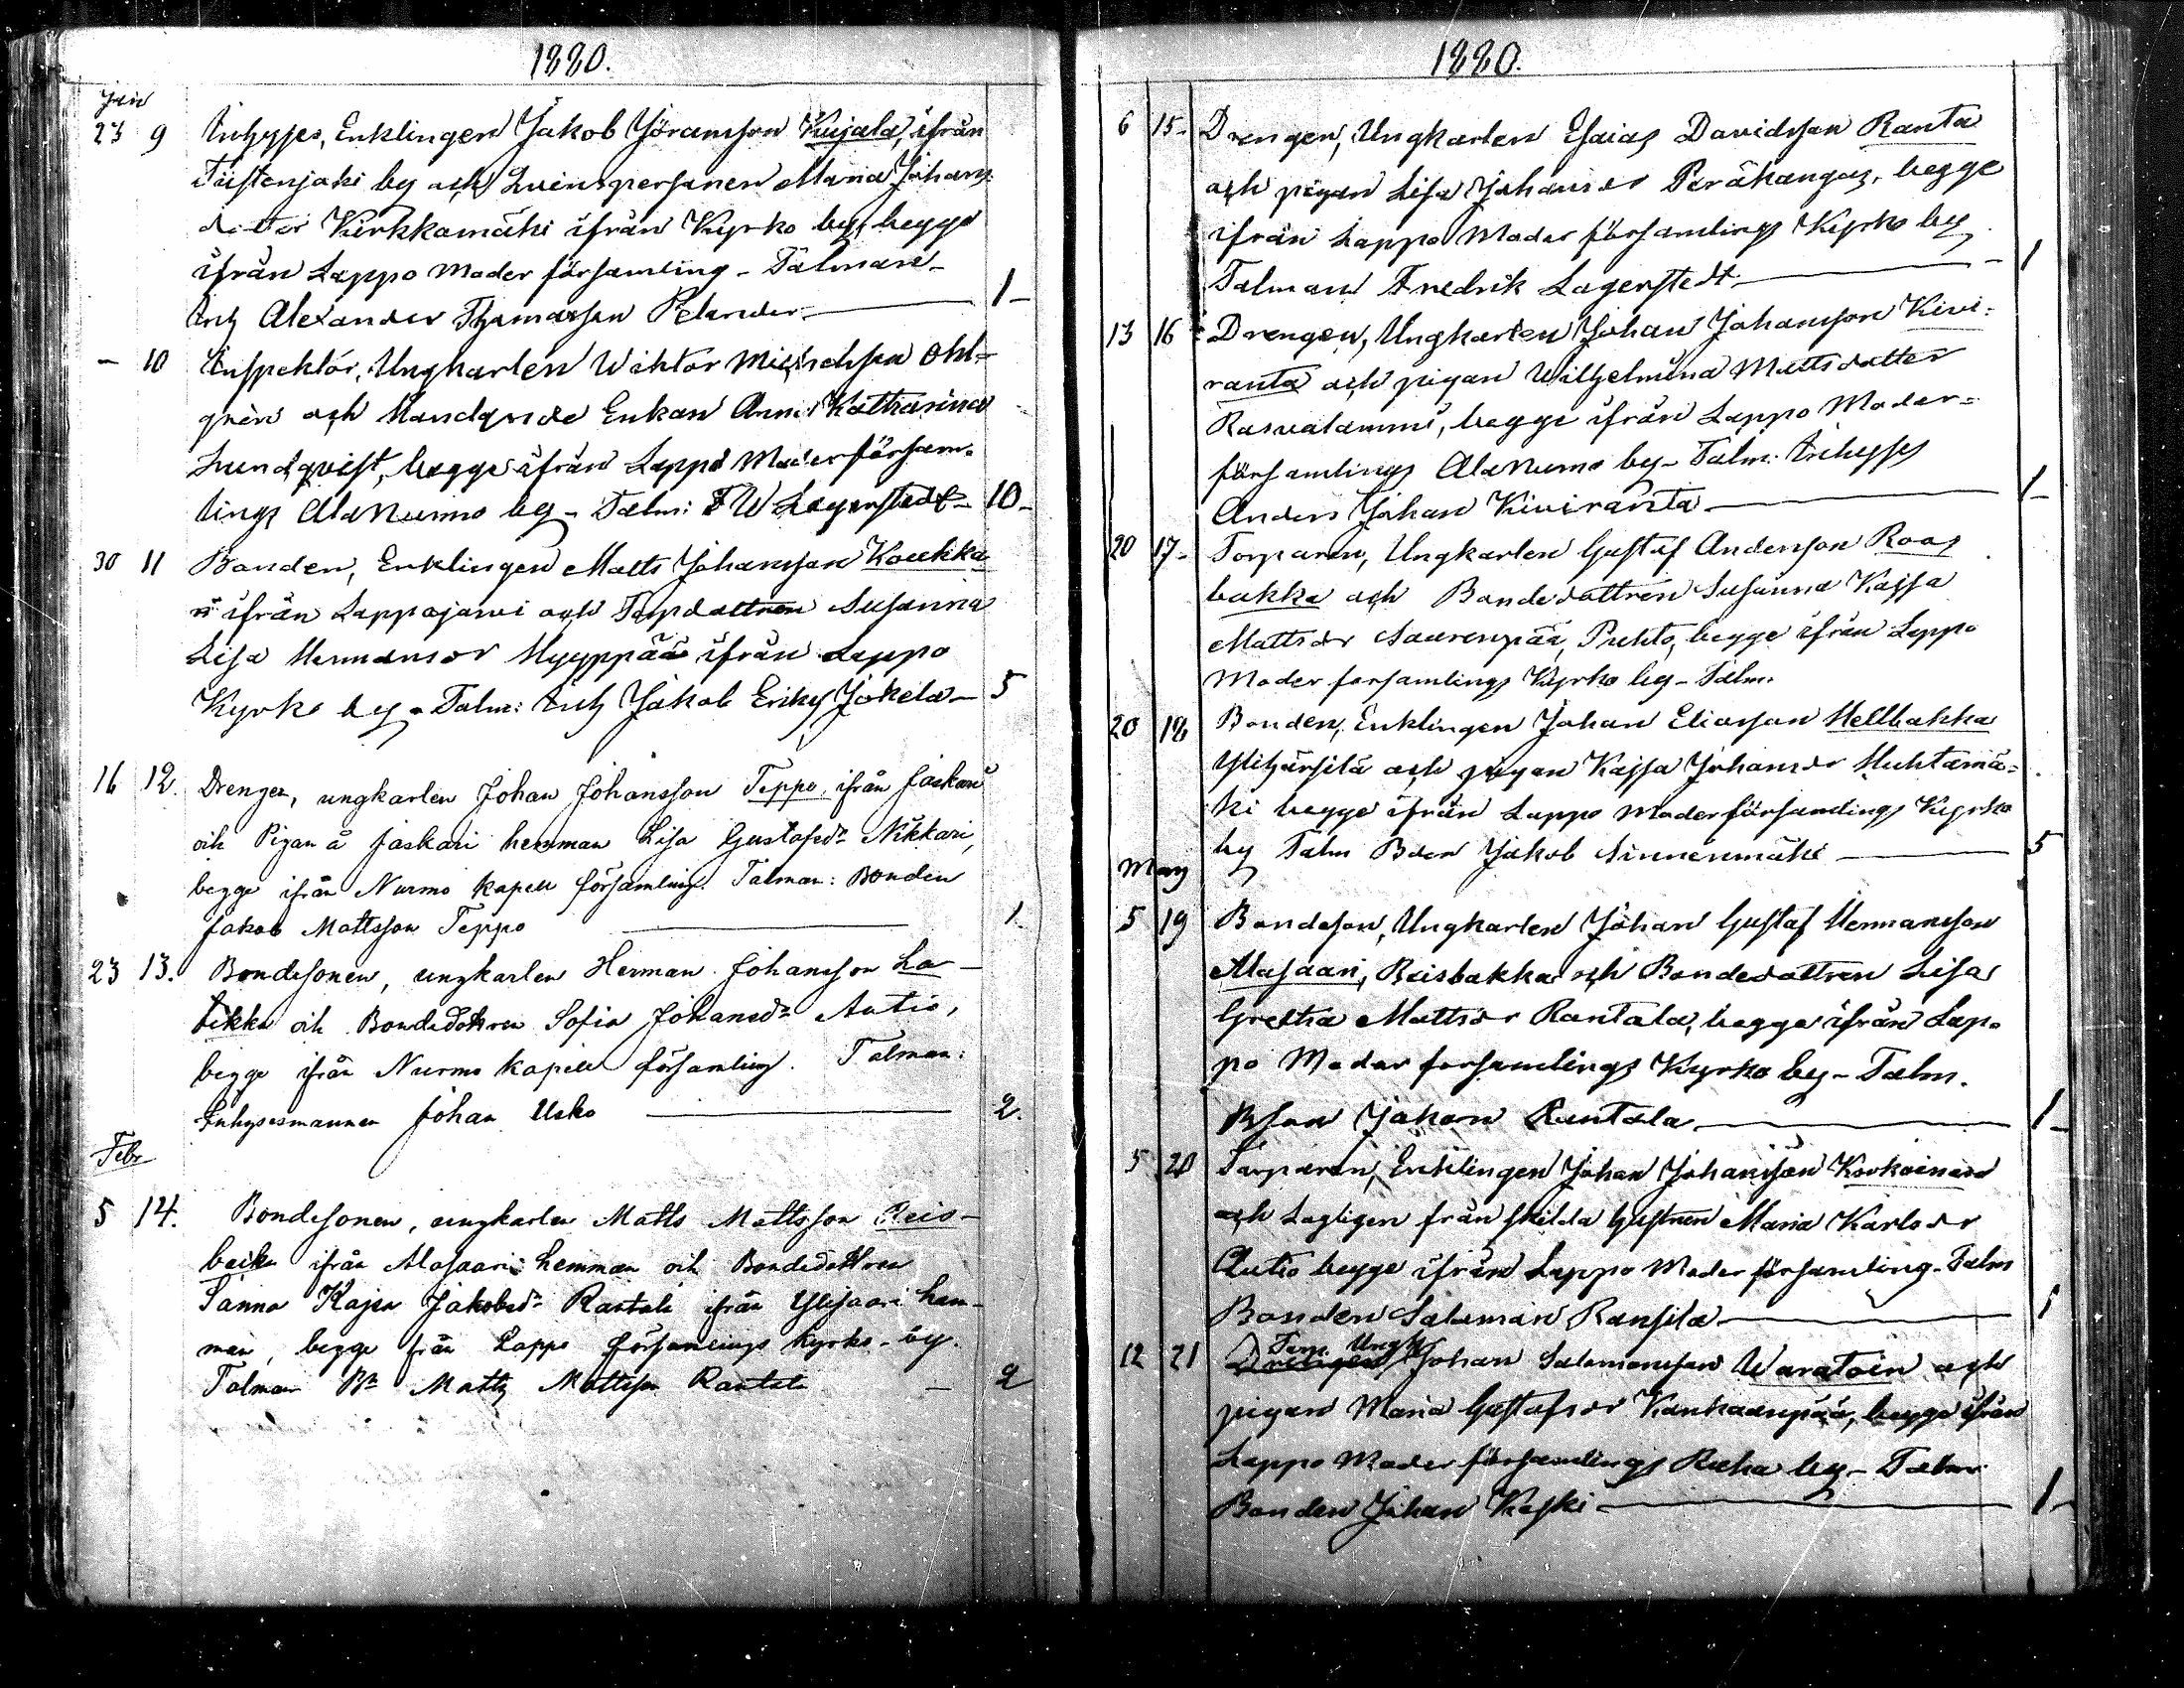 1880.
Jan
23 9 Inhyses, Enklingen Jakob Jöransson Kujala, ifrån
Tiistenjoki by och Qvinspersonen Maria Johans
dotter Kirkkomäki ifrån Kyrko by, begge
ifrån Lappo Moder församling - Talman -
Inh Alexander Thomasson Pelander 1 -
- 10 Inspektor, Ungkarlen Wiktor Michelsson Ohl-
grén och Handlande Enkan Anna Katharina
Lundqvist, begge ifrån Lappo Moderförsam-
lings AlaNurmo by - Talm: F W Lagerstedt - 10 -
30 11 Bonden, Enklingen Matts Johansson Koukka
ri ifrån Lappajärvi och Torpdottren Susanna
Lisa Hermansdr Hyyppää ifrån Lappo
Kyrko by - Talm: Inh Jakob Eriks Jokela - 5
16 12. Drengen, ungkarlen Johan Johansson Teppo ifrån Jaskari
och Pigan å Jaskari hemman Lisa Gustafsdr Nikkari,
begge ifrån Nurmo kapell församling. Talman: Bonden
Jakob Mattsson Teppo 1.
23 13. Bondesonen, ungkarlen Herman Johansson La-
tikka och Bondedottren Sofia Johansdr Autio,
begge ifrån Nurmo kapell församling. Talman:
Inhysesmannen Johan Usko 2.
Febr
5 14. Bondesonen, ungkarlen Matts Mattsson Reis-
backa ifrån Alasaari hemman och Bondedottren
Sanna Kajsa Jakobsdr Rantala ifrån Ylisaari hem-
man, begge från Lappo församlings Kyrko-by.
Talman Bn Matts Mattsson Rantala - 2
1880.
6 15- Drengen, Ungkarlen Esaias Davidsson Ranta
och pigan Lisa Johansdr Peräkangas, begge
ifrån Lappo Moder församlings Kyrko by
Talman Fredrik Lagerstedt - 1
13 16 Drengen, Ungkarlen Johan Johansson Kivi-
ranta och pigan Wilhelmina Mattsdotter
Rasvalammi, begge ifrån Lappo Moder-
församlings AlaNurmo by - Talm: Inhyses
Anders Johan Kiviranta 1 -
20 17- Torparen, Ungkarlen Gustaf Andersson Roos
bakka och Bondedottren Susanna Kajsa
Mattsdr Saarenpää, Puhto, begge ifrån Lappo
Moder forsamlings Kyrko by - Talm.
20 18 Bonden, Enklingen Johan Eliasson Hellbakka
Ylihärsilä och pigan Kajsa Johansdr Huhtamä-
ki begge ifrån Lappo Moderförsamlings Kyrko
by Talm Bden Jakob Sinnenmäki 5
May
5 19 Bondeson, Ungkarlen Johan Gustaf Hermansson
Alasaari, Reisbakka och Bondedottren Lisa
Gretha Mattsdr Rantala, begge ifrån Lap-
po Moder forsamlings Kyrko by - Talm.
Bson Johan Rantala 1 -
5 20 Torparen, Enklingen Johan Johansson Korkoinen
och Lagligen från skilda hustrun Maria Karlsdr
Autio begge ifrån Lappo Moder församling - Talm
Bonden Salomon Ransila 1
12 21 Drengen Torp. Ungk Johan Salomonsson Waratoin och
pigan Maria Gustafsdr Kankaanpää, begge ifrån
Lappo Moder församlings Ruha by - Talm
Bonden Johan Koski 1 -